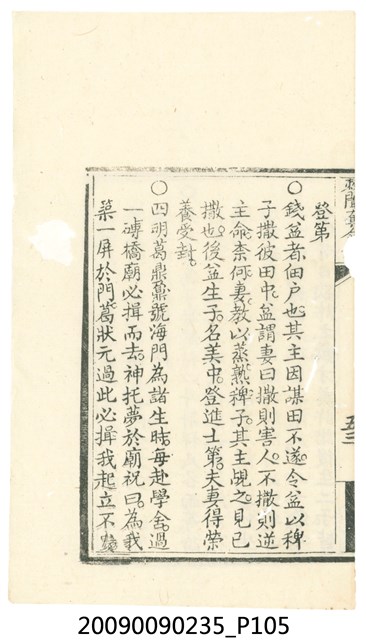 登第
○錢益者佃户也其主因謀田不遂令益以稗
子撒彼田中益謂妻曰撒則害人不撒則逆
主命柰何妻教以蒸熟稗子其主覘之見已
撒也後益生子名美中登進士第夫妻得榮
養受封
○四明葛鼎鼐號海門為諸生時每赴學舍過
一磚橋廟必揖而去神托夢於廟祝曰為我
築一屏於門葛狀元過此必揖我起立不
20090090235_P105